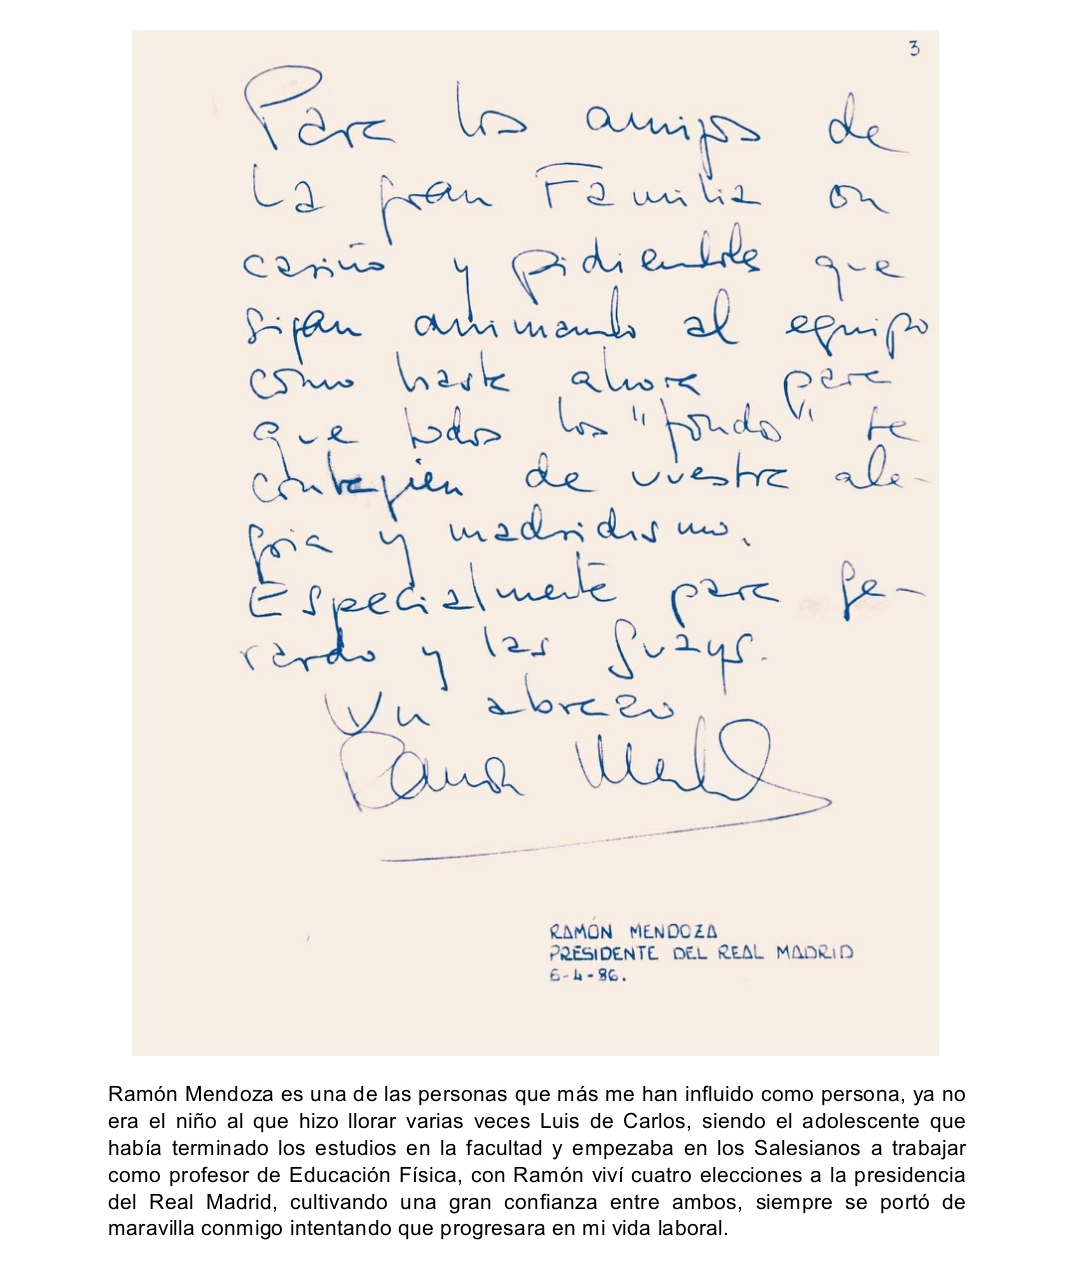 3
Para los amigos de
La gran Familia con
cariño y pidiendoles que
sigan animando al equipo
como hasta ahora para
que todos los "fondo" se
contagien de vuestra ale-
gria y madridismo.
Especialmente para Ge-
rardo y las Guays.
Un abrazo
Ramón Mendoza
RAMÓN MENDOZA
PRESIDENTE DEL REAL MADRID
6-4-86.
Ramón Mendoza es una de las personas que más me han influido como persona, ya no
era el niño al que hizo llorar varias veces Luis de Carlos, siendo el adolescente que
había terminado los estudios en la facultad y empezaba en los Salesianos a trabajar
como profesor de Educación Física, con Ramón viví cuatro elecciones a la presidencia
del Real Madrid, cultivando una gran confianza entre ambos, siempre se portó de
maravilla conmigo intentando que progresara en mi vida laboral.